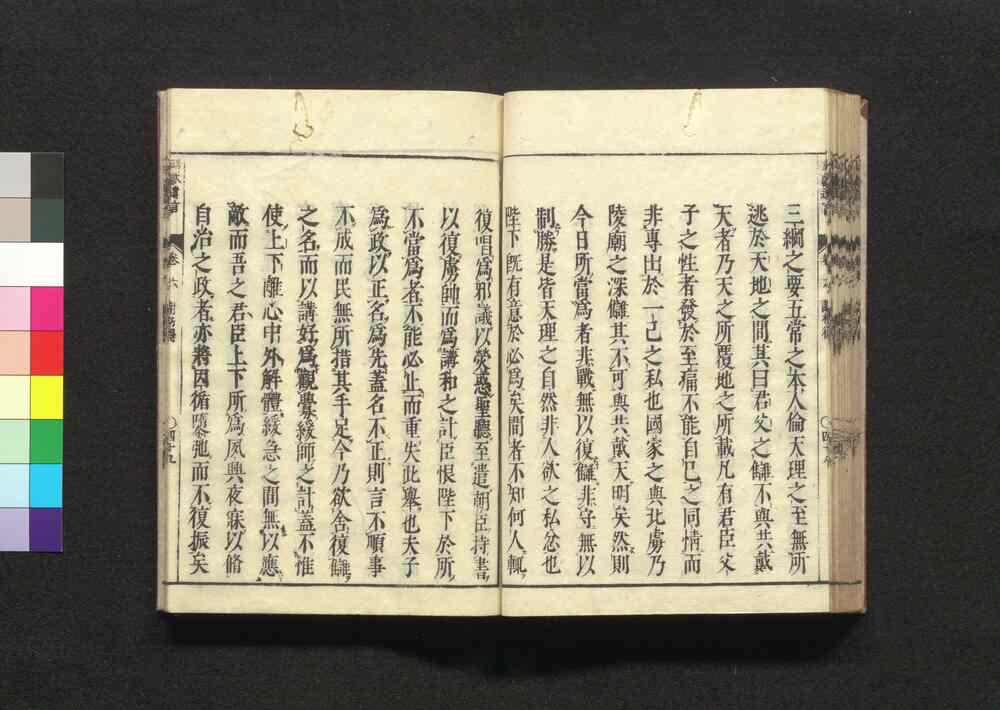 三綱之要五常之本人倫天理之至無所
逃於天地之間其曰君父之讎不與共戴
天者乃天之所覆地之所載凡有君臣父
子之性者發於至痛不能自已之同情而
非專出於一己之私也國家之與北虜乃
陵廟之深讎其不可與共戴天明矣然則
今日所當爲者非戰無以復讎非守無以
制勝是皆天理之自然非人欲之私忿也
陛下旣有意於必爲矣間者不知何人輒
復唱爲邪議以熒惑聖聽至遣朝臣持書
以復虜帥而爲講和之計臣恨陛下於所
不當爲者不能必止而重失此擧也夫子
爲政以正名爲先蓋名不正則言不順事
不成而民無所措其手足今乃欲舍復讎
之名而以講好爲觀釁緩師之計蓋不惟
使上下離心中外解體緩急之間無以應
敵而吾之君臣上下所爲夙興夜寐以脩
自治之政者亦將因循隳弛而不復振矣
卷六
四十九